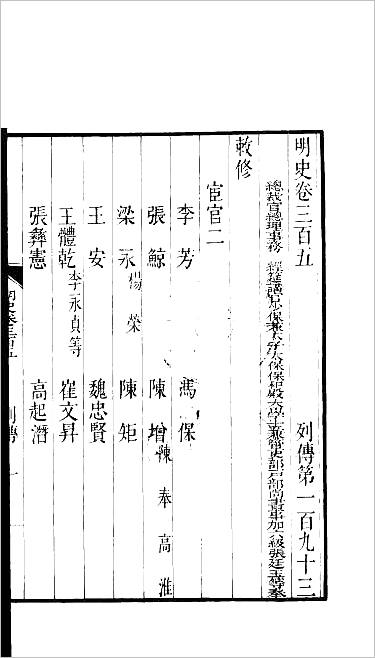 明史卷三百五 列傳第一百九十三
總裁官總理事務 經筵講官少保兼太子太保保和殿大學士兼管吏部戶部尚書事加六級張廷玉等奉
敕修
宦官二
李芳 馮保
張鯨 陳增 陳奉 高淮
梁永 楊榮 陳矩
王安 魏忠賢
王體乾 李永貞等 崔文昇
張彝憲 高起潛
明史卷三百五 列傳 一